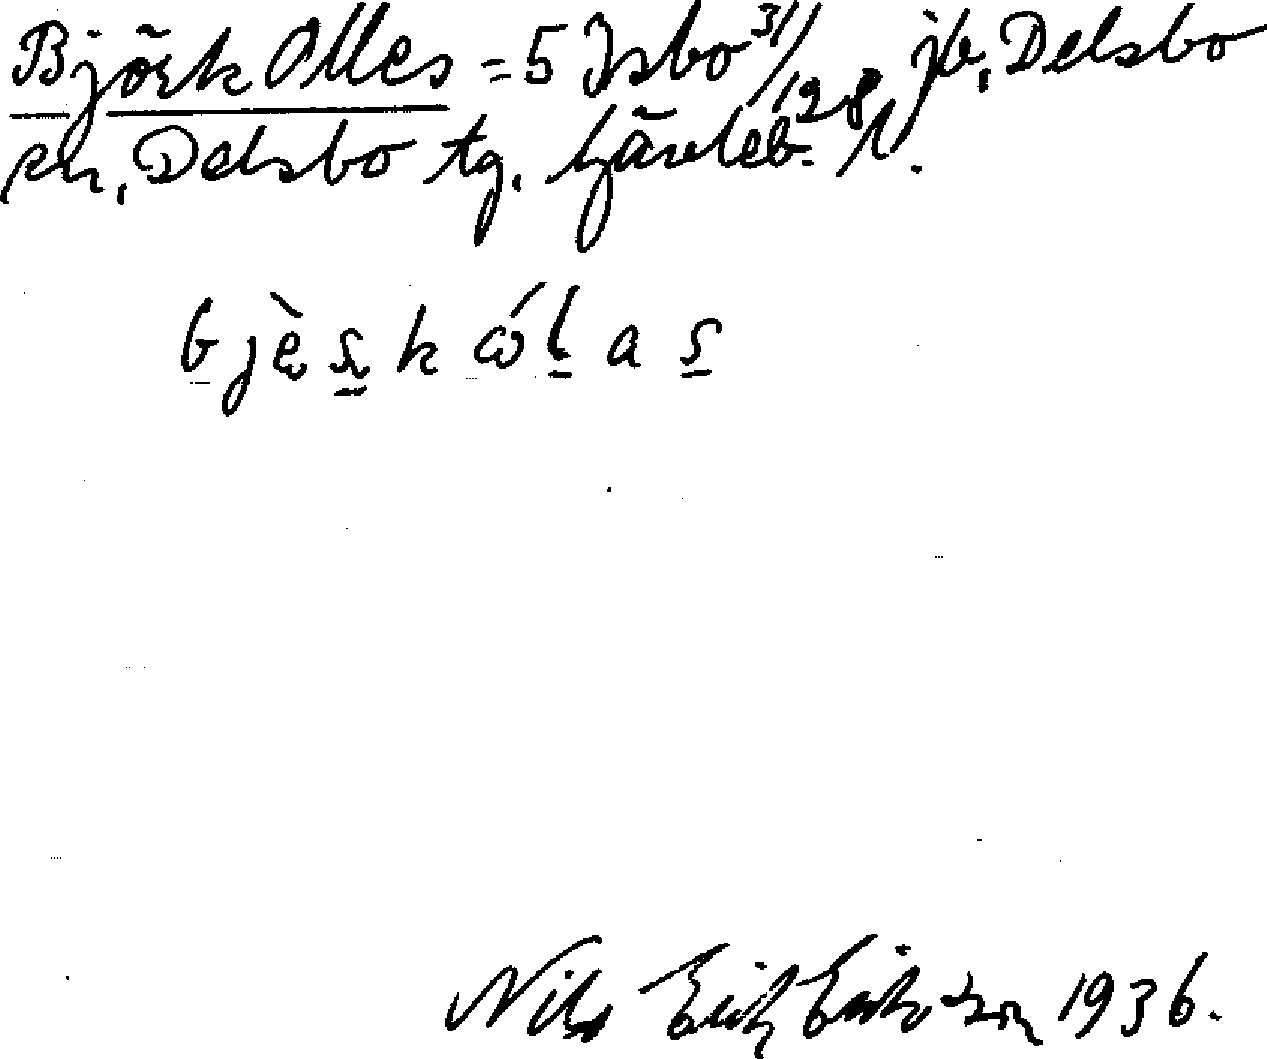 Björk Olles = 5 Isbo 3/128 jb, Delsbo
sn, Delsbo tg. Gävleb. l.
bjèskålas
Nils Erik Eriksson 1936.